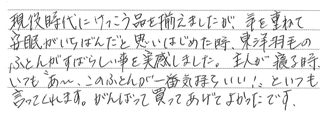 現役時代にけっこう品を揃えましたが、年を重ねて
安眠がいちばんだと思いはじめた時、東洋羽毛の
ふとんがすばらしい事を実感しました。主人が寝る時、
いつも"あ〜、このふとんが一番気持ちいい!"といつも
言ってくれます。がんばって買ってあげてよかったです。